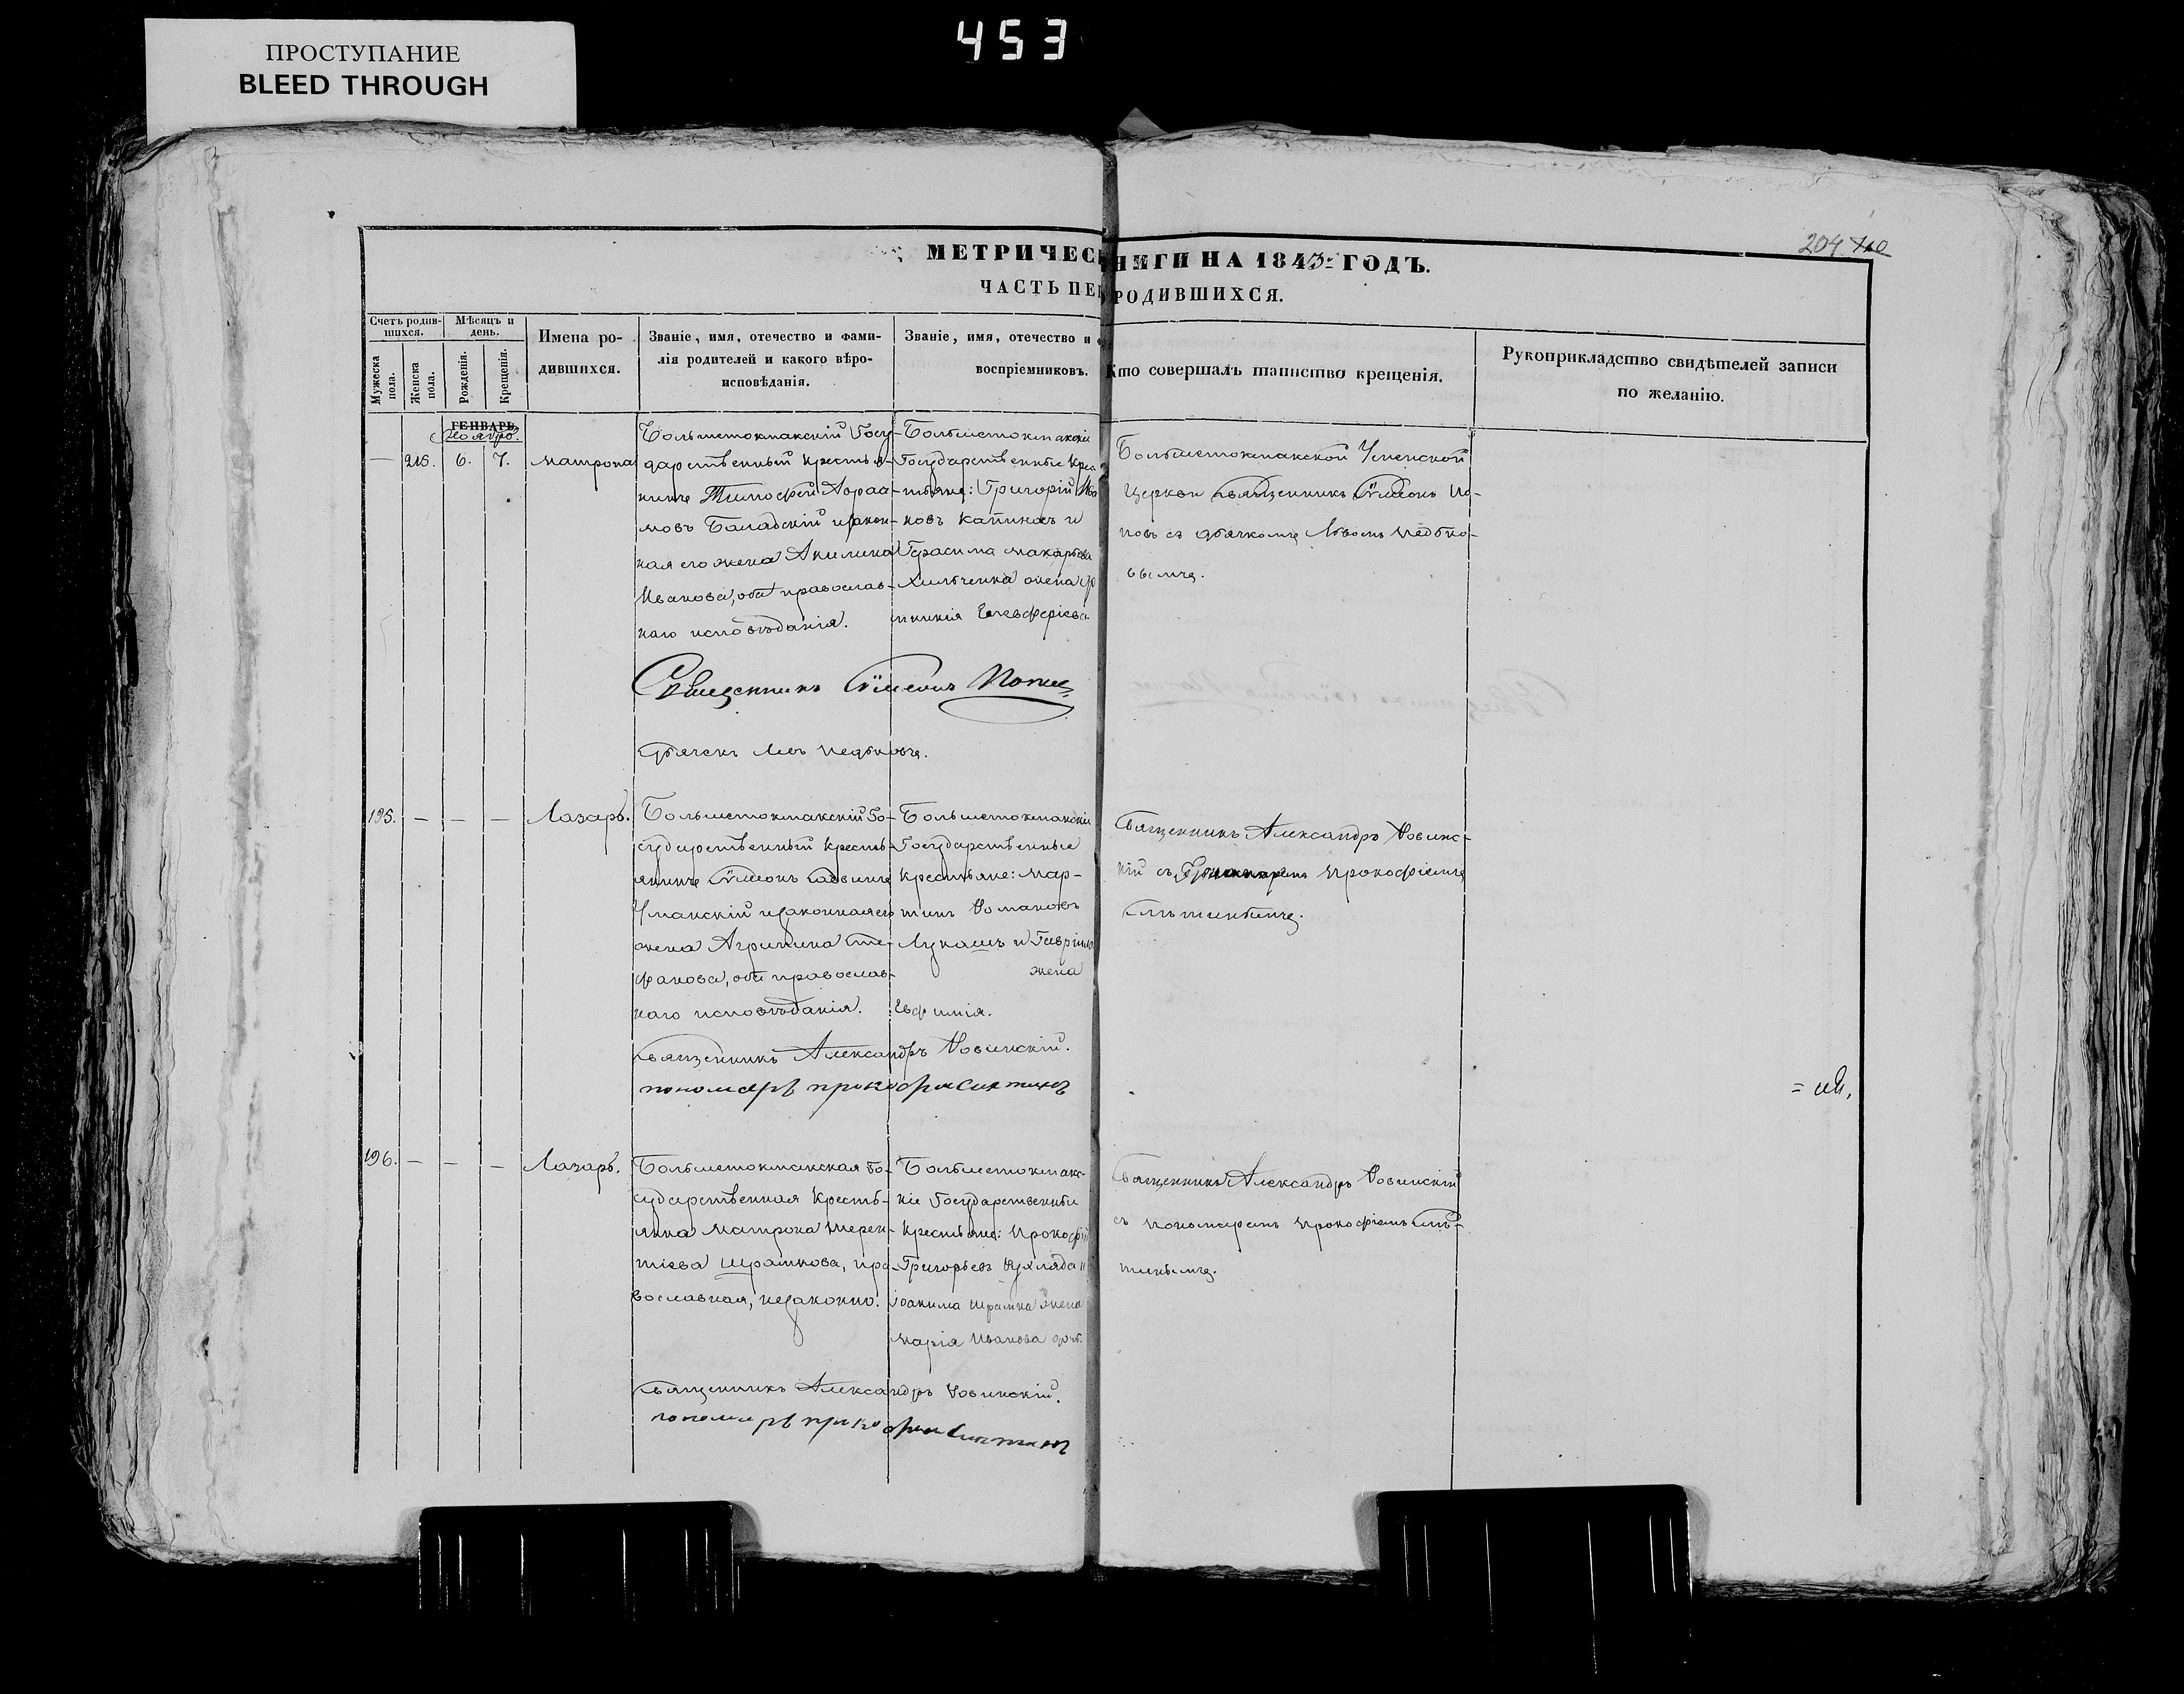 ПРОСТУПАНИЕ
BLEED THROUGH
453
204
МЕТРИЧЕС НИГИ НА 1843 ГОДЪ.
ЧАСТЬ ПЕ РОДИВШИХСЯ.
Счетъ родив-
шихся.
Мужеска
пола.
Женска
пола.
Мѣсяцъ и
день.
Рожденія.
Крещенія.
Имена ро-
дившихся.
Званіе, имя, отечество и фами-
лія родителей и какого вѣро-
исповѣданія.
Званіе, имя, отечество и
воспріемниковъ.
Кто совершалъ таинство крещенія.
Рукоприкладство свидѣтелей записи
по желанію.
ГЕНВАРЬ
Ноябрь.
— 215. 6. 7. Матрона
Большетокмакскій Госу-
дарственный Крестья-
нинъ Тимофей Авраа-
мовъ и закон-
ная его жена Акилина
Иванова, оба православ-
наго исповѣданія.
Большетокмакскіе
Государственные Крес
тьяне: Григорій Ива
новъ Капиносъ и
Герасима Макарьева
Хильченка жена
Елевферіева
Большетокмакской Успенской
Церкви Священникъ Сѷмеонъ По-
повъ съ дьячкомъ Львомъ Недѣко-
вымъ.
Священникъ Сѷмеонъ Поповъ
Дьячекъ Левъ
195. — — — Лазарь.
Большетокмакскій Го-
сударственный Кресть-
янинъ Сѷмеонъ Саввинъ
Уманскій и законная его
жена Агрипина Сте-
фанова, оба православ-
наго исповѣданія.
Большетокмакскіе
Государственные
Крестьяне: Мар-
тинъ Романовъ
Лукашъ и Гавріила
жена
Евфимія.
Священникъ Александръ Ровинс-
кій съ Прокофіемъ
Священникъ Александръ Ровинскій.
пономарь прокофій
196. — — — Лазарь.
Большетокмакская Го-
сударственная Кресть-
янка Матрона Терен-
тіева Шрамкова, пра-
вославная, незаконно.
Большетокмакс-
кіе Государственные
Крестьяне: Прокофій
Григорьевъ Кухляда и
Іоакима Шрамка жена
Марія Иванова дочь.
Священникъ Александръ Ровинскій
съ пономаремъ Прокофіемъ
Священникъ Александръ Ровинскій.
пономарь прокофій